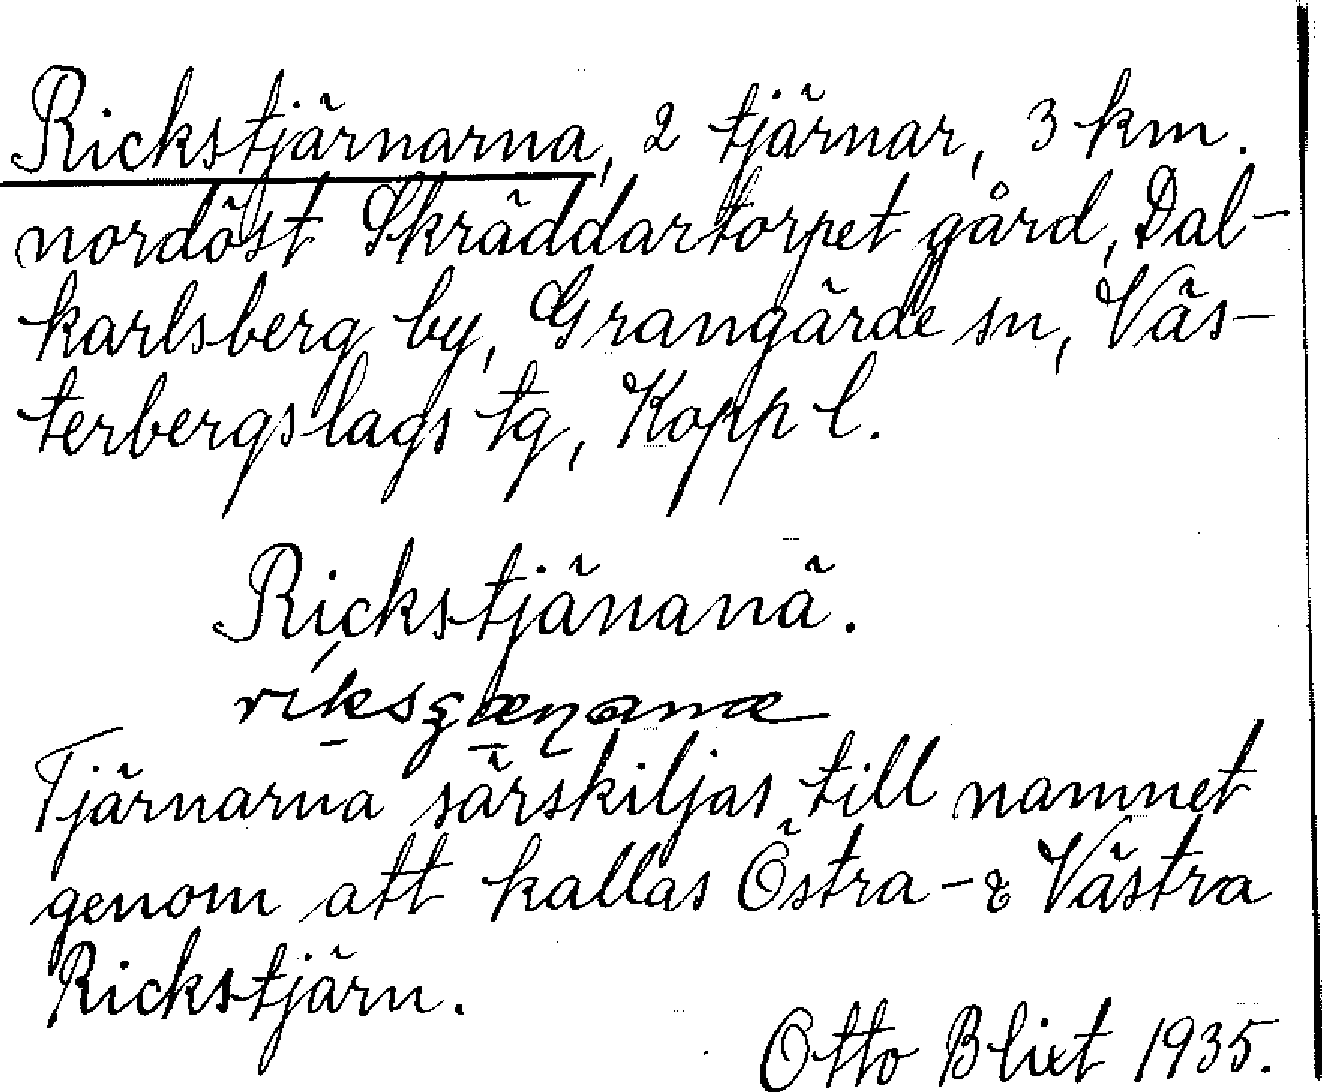 Rickstjärnarna, 2 tjärnar, 3 km.
nordöst Skräddartorpet gård, Dal-
karlsberg by, Grangärde sn, Väs-
terbergslags tg, Kopp l.
Rickstjänanä.
Tjärnarna särskiljas till namnet
genom att kallas Östra - & Västra
Rickstjärn.
Otto Blixt 1935.